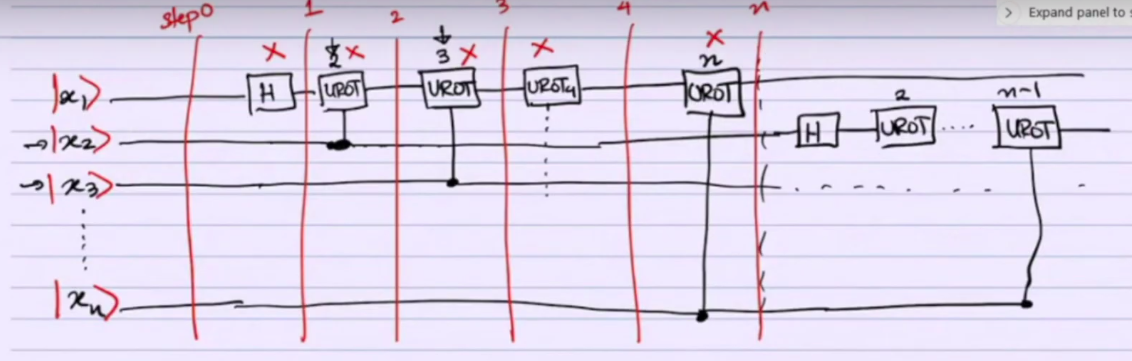 > Expand panel to
step0 1 2 3 4 n
x x x x x
2 3 n
|x₁⟩ H UROT UROT UROT₄ UROT
2 n-1
→|x₂⟩ H UROT .... UROT
→|x₃⟩
|xₙ⟩